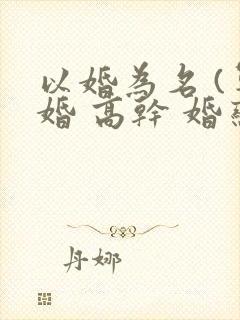 以婚為名（
婚 高幹 婚
丹娜